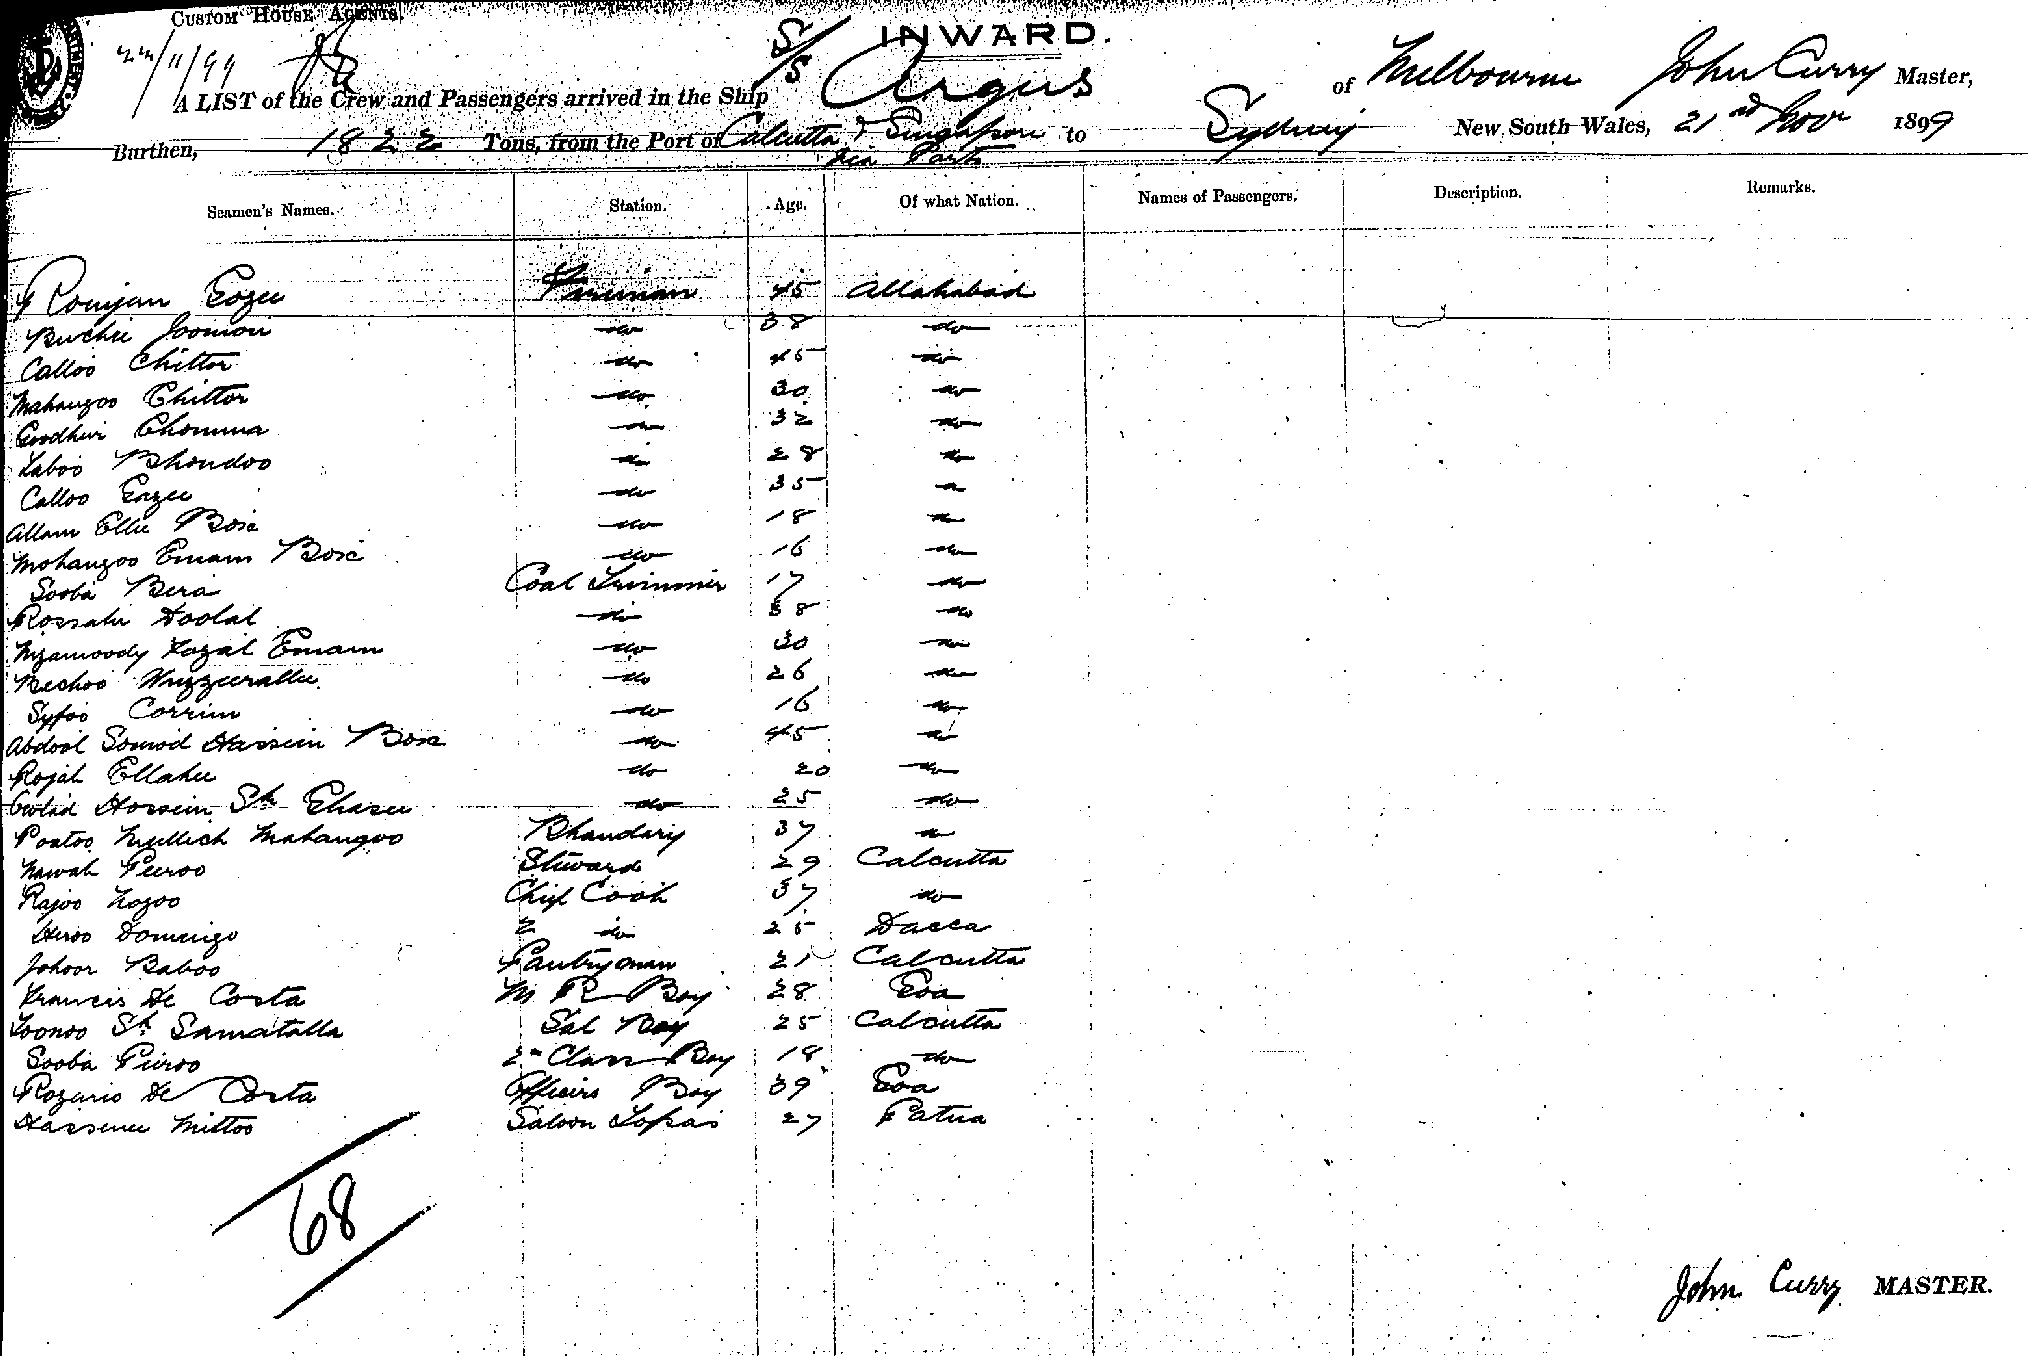 CUSTOM HOUSE AGENTS.
22/11/99
INWARD.
A LIST of the Crew and Passengers arrived in the Ship S/S Argus of Melbourne John Curry Master,
Burthen, 1822 Tons, from the Port of Calcutta & Singapore to Sydney New South Wales, 21st Nov 1899
via Ports
Seamen's Names. Station. Age. Of what Nation. Names of Passengers. Description. Remarks.
Romjan Gozee Fireman 45 Allahabad
Buchee Joomon do 38 do
Calloo Chittor do 45 do
Mahangoo Chittor do 30 do
Goodhur Chomma do 32 do
Laboo Bhondoo do 28 do
Calloo Gazee do 35 do
Allam Ellie Box do 18 do
Mohangoo Emam Box do 16 do
Sooba Bera Coal Trimmer 17 do
Rossalie Doolal do 38 do
Nyamoody Fozal Emam do 30 do
Bechoo Nuzzerallee do 26 do
Syfoo Corrim do 16 do
Abdool Somod Hassein Box do 45 do
Rojab Ellahee do 20 do
Hossein Sk do 25 do
Pootoo Mullick Mahangoo Bhandary 37 do
Nawab Peeroo Steward 29 Calcutta
Rajoo Nozoo Chief Cook 37 do
Heroo Domingo 2 do 25 Dacca
Johoor Baboo Pantryman 21 Calcutta
Francis De Costa M R Boy 28 Goa
Toonoo Sk Samatalla Sal Boy 25 Calcutta
Sooba Peeroo 2nd Class Boy 18 do
Rozario De Costa Officers Boy 39 Goa
Hassenee Mittoo Saloon Topas 27 Patna
68
John Curry MASTER.